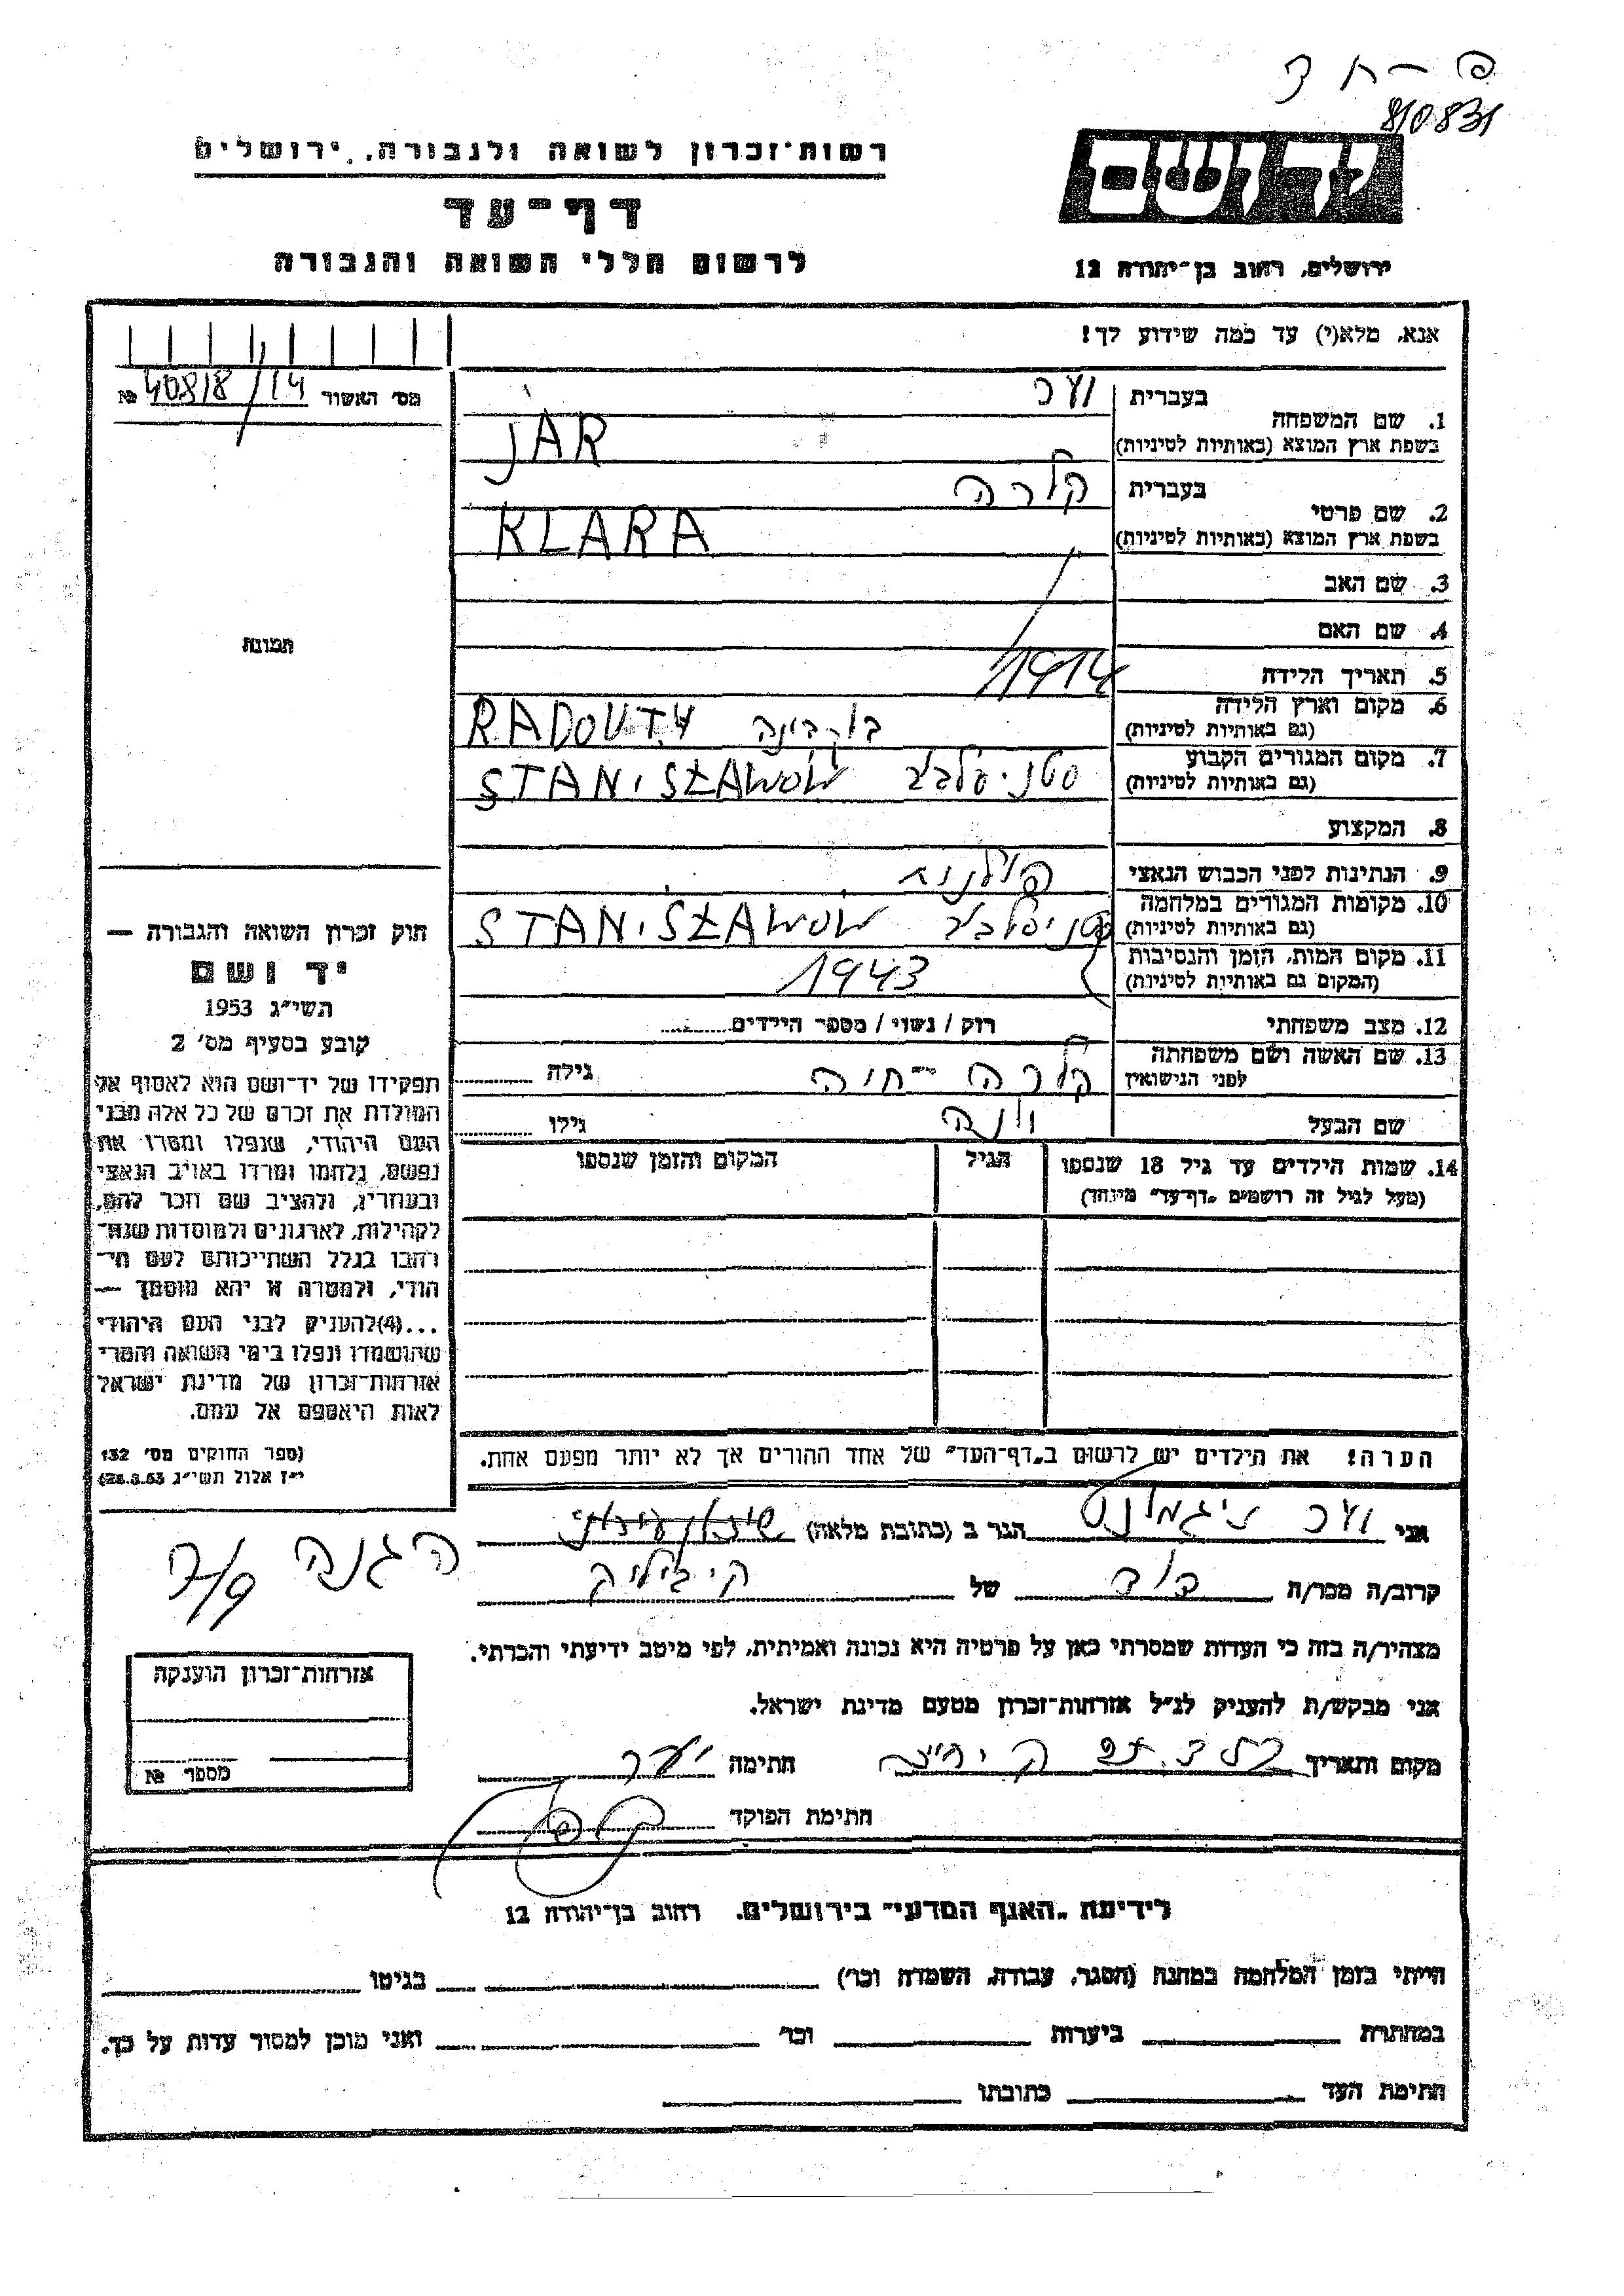 810831
רשות־זכרון לשואה ולגבורה, ירושלים
דף־עד
לרשום חללי השואה והגבורה
ירושלים, רחוב בן־יהודה 12
אנא, מלא(י) עד כמה שידוע לך!
מס׳ האשור № 40818/14
1. שם המשפחה
בעברית
בשפת ארץ המוצא (באותיות לטיניות) JAR
2. שם פרטי
בעברית קלרה
בשפת ארץ המוצא (באותיות לטיניות) KLARA
3. שם האב
4. שם האם
5. תאריך הלידה 1914
6. מקום וארץ הלידה
(גם באותיות לטיניות) RADOUTY
7. מקום המגורים הקבוע
(גם באותיות לטיניות) STANISŁAWOW
8. המקצוע
9. הנתינות לפני הכבוש הנאצי פולנית
10. מקומות המגורים במלחמה
(גם באותיות לטיניות) STANISŁAWOW
11. מקום המות, הזמן והנסיבות
(המקום גם באותיות לטיניות) 1943
12. מצב משפחתי רוק / נשוי / מספר הילדים
13. שם האשה ושם משפחתה
לפני הנישואין קלרה - חיה גילה
שם הבעל גילו
14. שמות הילדים עד גיל 18 שנספו הגיל המקום והזמן שנספו
(מעל לגיל זה רושמים „דף־עד" מיוחד)
הערה! את הילדים יש לרשום ב„דף־העד" של אחד ההורים אך לא יותר מפעם אחת.
תמונה
חוק זכרון השואה והגבורה —
יד ושם
תשי״ג 1953
קובע בסעיף מס׳ 2
תפקידו של יד־ושם הוא לאסוף אל
המולדת את זכרם של כל אלה מבני
העם היהודי, שנפלו ומסרו את
נפשם, נלחמו ומרדו באויב הנאצי
ובעוזריו, ולהציב שם וזכר להם,
לקהילות, לארגונים ולמוסדות שנח־
רבו בגלל השתייכותם לעם הי־
הודי, ולמטרה זו יהא מוסמך —
...(4)להעניק לבני העם היהודי
שהושמדו ונפלו בימי השואה והמרי
אזרחות־זכרון של מדינת ישראל
לאות היאספם אל עמם.
(ספר החוקים מס׳ 132
י״ז אלול תשי״ג 28.8.53)
אני זיגמונט הגר ב (כתובת מלאה)
הגנה 7/9
קרוב/ה מכר/ה דוד של
מצהיר/ה בזה כי העדות שמסרתי כאן על פרטיה היא נכונה ואמיתית, לפי מיטב ידיעתי והכרתי.
אני מבקש/ת להעניק לנ״ל אזרחות־זכרון מטעם מדינת ישראל.
מקום ותאריך חתימה יער
חתימת הפוקד
אזרחות־זכרון הוענקה
מספר №
לידיעת „האגף המדעי" בירושלים, רחוב בן־יהודה 12
הייתי בזמן המלחמה במחנה (הסגר, עבודה, השמדה וכו׳) בגיטו
במחתרת ביערות וכו׳ ואני מוכן למסור עדות על כך.
חתימת העד כתובתו